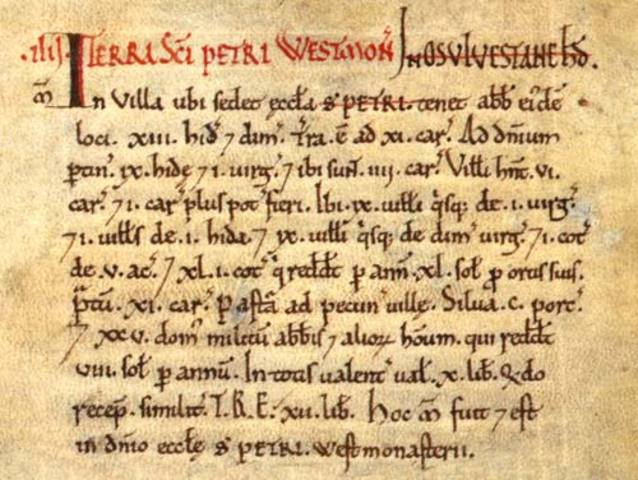 .iiij. TERRA SCI PETRI WESTMON̄ IN OSVLVESTANE H̄D.
m̄ In Villa ubi sedet eccła S PETRI. tenet abb ei'de
loci. xiii. hid' 7 dim'. Tra. ē ad xi. car'. Ad dn̄ium
ptin'. ix. hidę 7 i. virg'. 7 ibi sunt. iiij. car'. Villi hn̄t. vi.
car'. 7 i. car' plus pot' fieri. Ibi. ix. uilli q̄sq; de. i. uirg'.
7 i. uills de. i. hida. 7 ix. uilli q̄sq; de dim' uirg'. 7 i. cot'
de. v. ac'. 7 xl. i. cot' q̄ reddt' p ann'. xl. soł p ortis suis.
p̄tū. xi. car'. Pastā ad pecun' uille. Silua. c. porc'.
7 xxv. dom' militū abbis 7 alioꝝ houm. qui reddt'
viii. soł p annū. In totis ualent' uał. x. lib'. Qdo
recep'. similit'. T. R. E. xii. lib'. Hoc m̄ fuit 7 est
in dn̄io ecclę S PETRI. Westmonasterii.